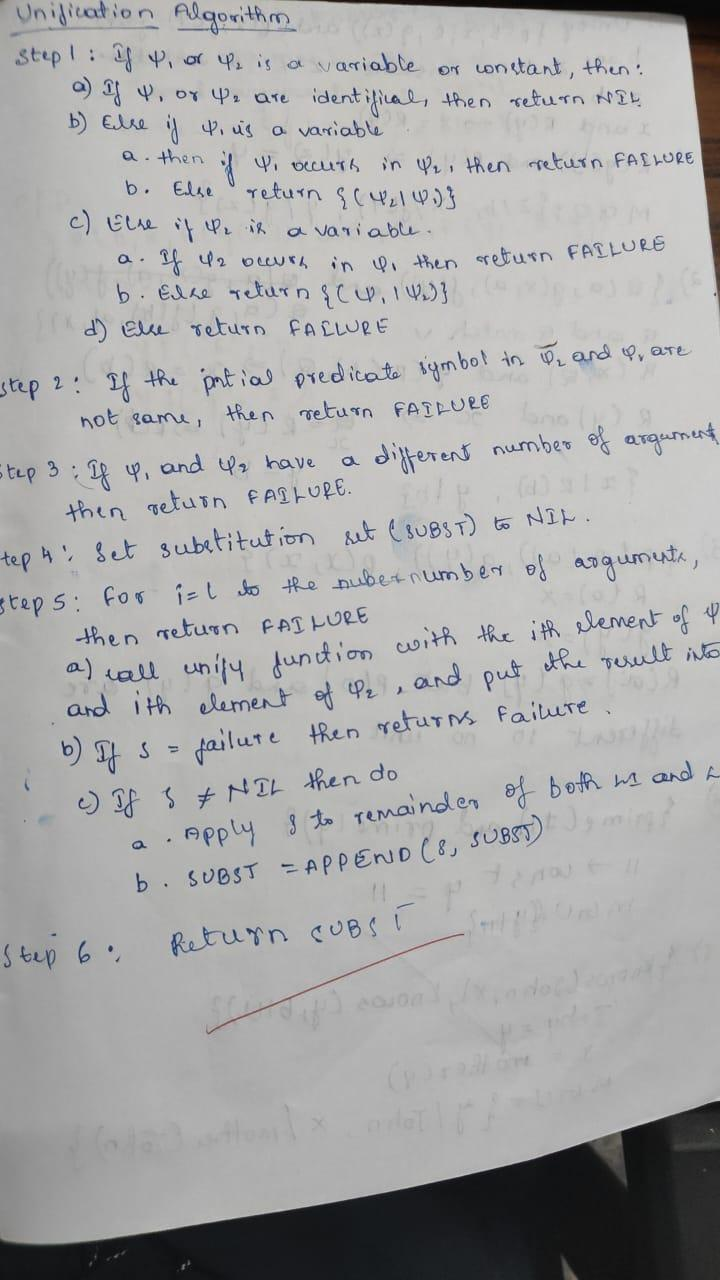 Unification Algorithm
Step 1 : If Ψ1 or Ψ2 is a variable or constant, then:
a) If Ψ1 or Ψ2 are identifical, then return NIL
b) Else if Ψ1 is a variable
a. then if Ψ1 occurs in Ψ2, then return FAILURE
b. Else return {(Ψ2/Ψ1)}
c) Else if Ψ2 is a variable.
a. If Ψ2 occurs in Ψ1 then return FAILURE
b. Else return {(Ψ1/Ψ2)}
d) Else return FAILURE
Step 2 : If the intial predicate symbol in Ψ2 and Ψ1 are
not same, then return FAILURE
Step 3 : If Ψ1 and Ψ2 have a different number of argument
then return FAILURE.
tep 4 : Set substitution set (SUBST) to NIL.
Step 5 : For i=1 to the number of arguments,
then return FAILURE
a) call unify function with the ith element of Ψ
and ith element of Ψ2, and put the result into
b) If S = failure then returns Failure.
c) If S ≠ NIL then do
a. Apply S to remainder of both L1 and L
b. SUBST = APPEND (S, SUBST)
Step 6 : Return SUBST